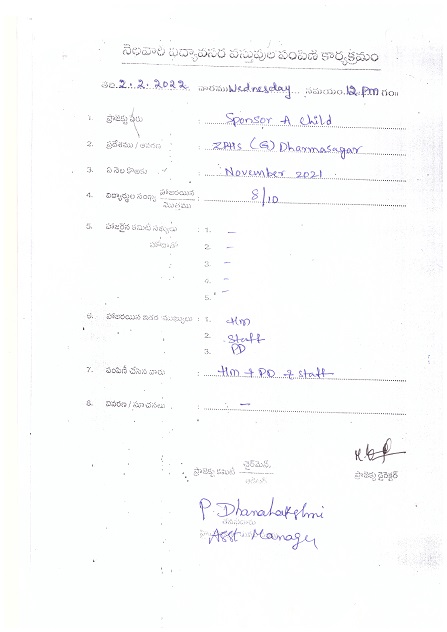 నెలవారి విద్యావసర వస్తువుల పంపిణి కార్యక్రమం
తేది. 2.2.2022 వారము Wednesday సమయం. 12 PM గం॥
1. ప్రాజెక్టు పేరు : Sponsor A Child
2. ప్రదేశము / ఆవరణ : ZPHS (G) Dharmasagar
3. ఏ నెల కొఱకు : November 2021
4. విద్యార్థుల సంఖ్య హాజరయిన / మొత్తము : 8/10
5. హాజరైన కమిటి సభ్యులు : 1. –
2. –
3. –
4. –
5. –
6. హాజరయిన ఇతర ముఖ్యులు : 1. HM
2. Staff
3. PD
7. పంపిణీ చేసిన వారు : HM & PD & Staff
8. వివరణ / సూచనలు : –
ప్రాజెక్టు కమిటి చైర్మెన్
ప్రాజెక్టు డైరెక్టర్
P. Dhanalakshmi
Asst Manager